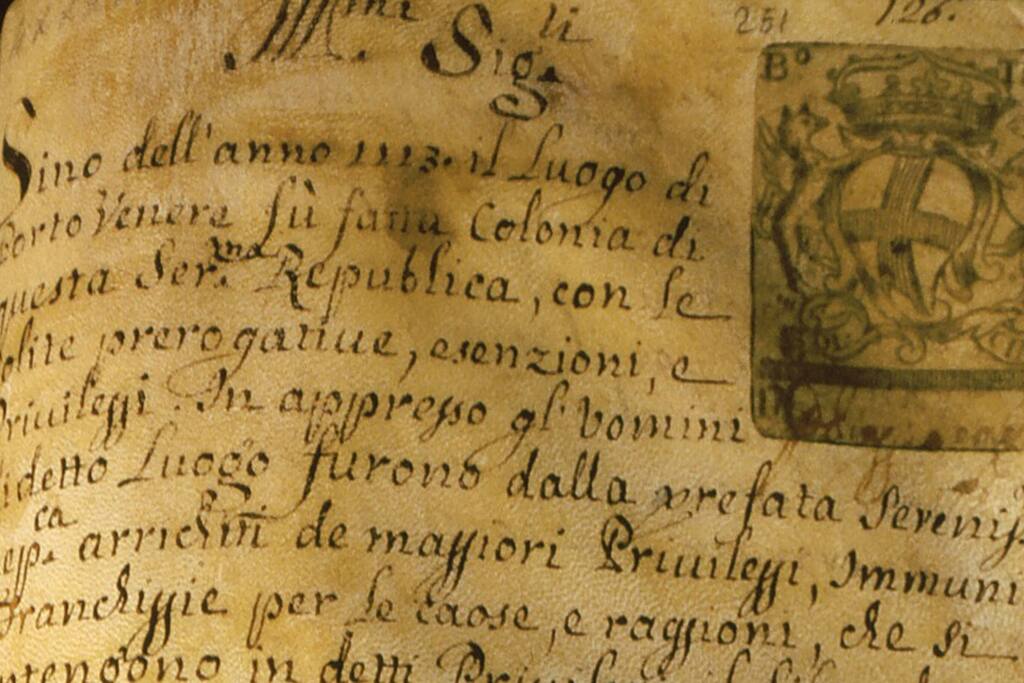 251 126.
M. Sig.li
B.o
Sino dell'anno 1113. il Luogo di
Porto Venere fù fatta Colonia di
questa Ser.ma Republica, con le
solite prerogatiue, esenzioni, e
Priuileggi. In appresso gl'Vomini
di detto Luogo furono dalla prefata Sereniss.
Rep.ca arrichiti de maggiori Priuileggi, Immuni
Franchiggie per le caose, e raggioni, che si
in detti